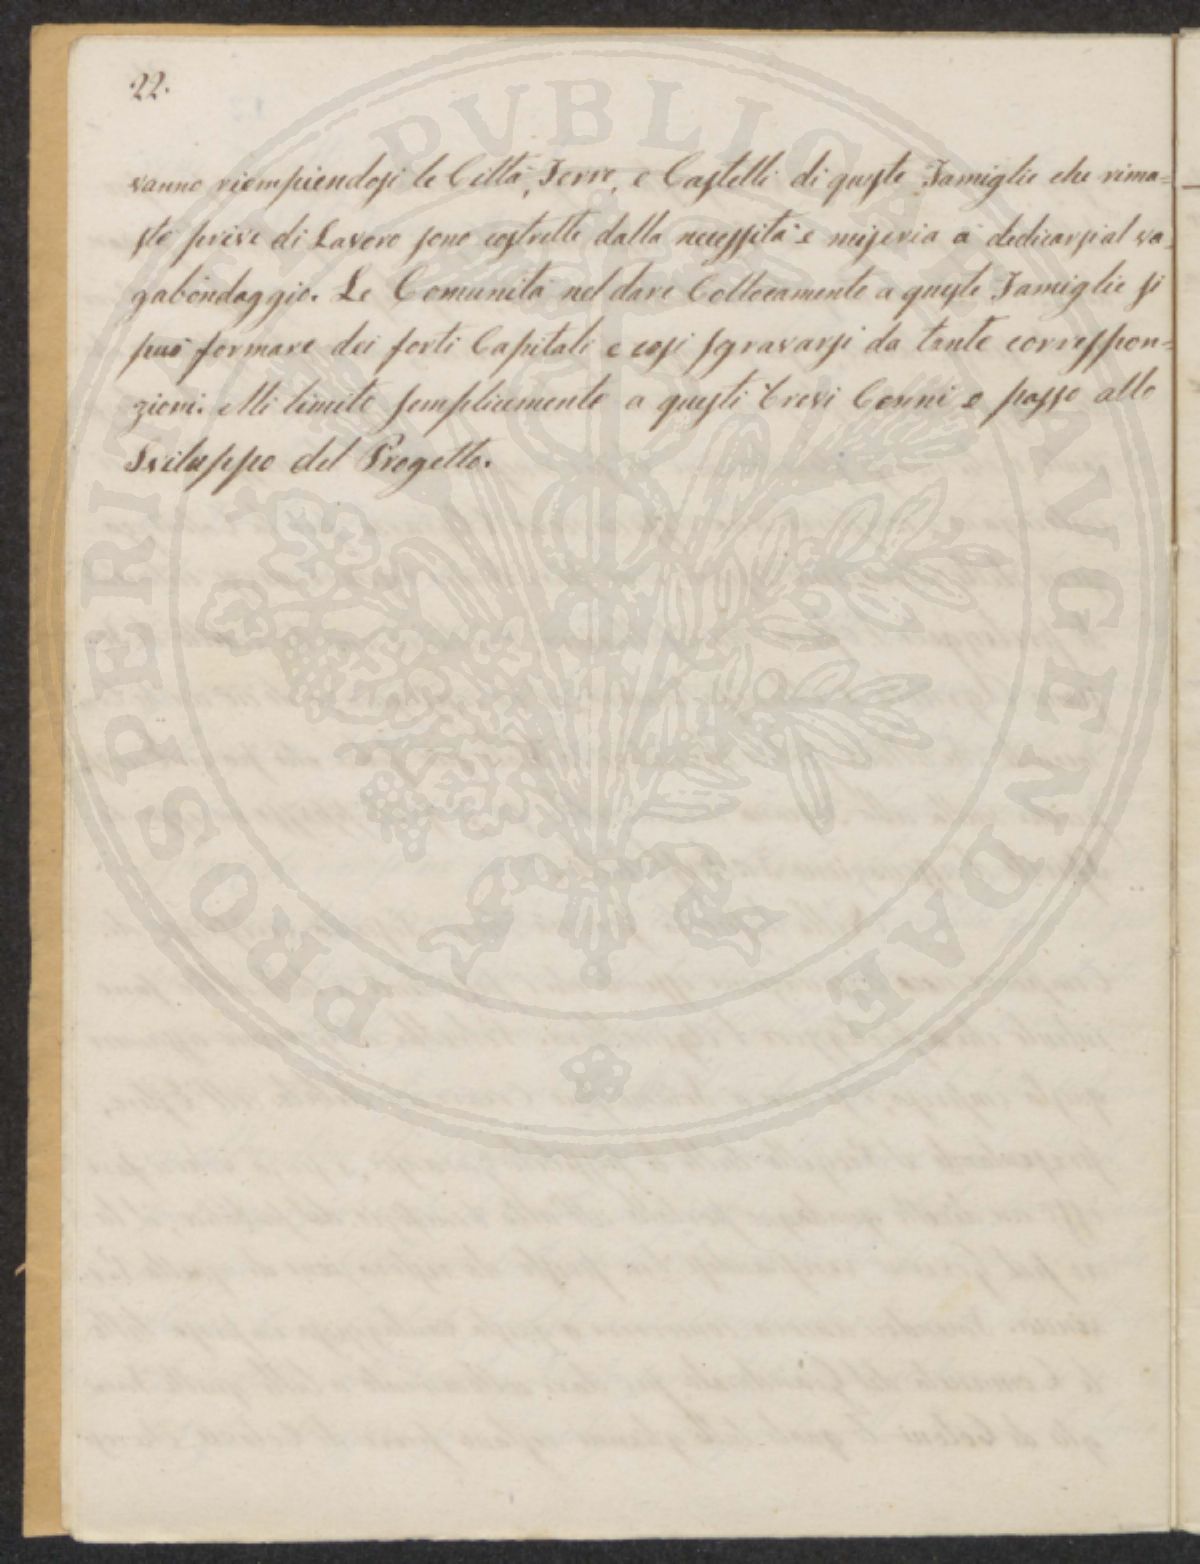 .22.
vanno riempiendosi le Città, Terre, e Castelli di queste Famiglie che rima=
ste prive di Lavoro sono costrette dalla necessità e miseria a dedicarsi al va=
gabondaggio. Le Comunità nel dare Collocamento a queste Famiglie si
può formare dei forti Capitali e così sgravarsi da tante correspon=
zioni. Mi limito semplicemente a questi brevi Cenni e passo allo
Sviluppo del Progetto.
PROSPERITATI PUBLICAE AVGENDAE